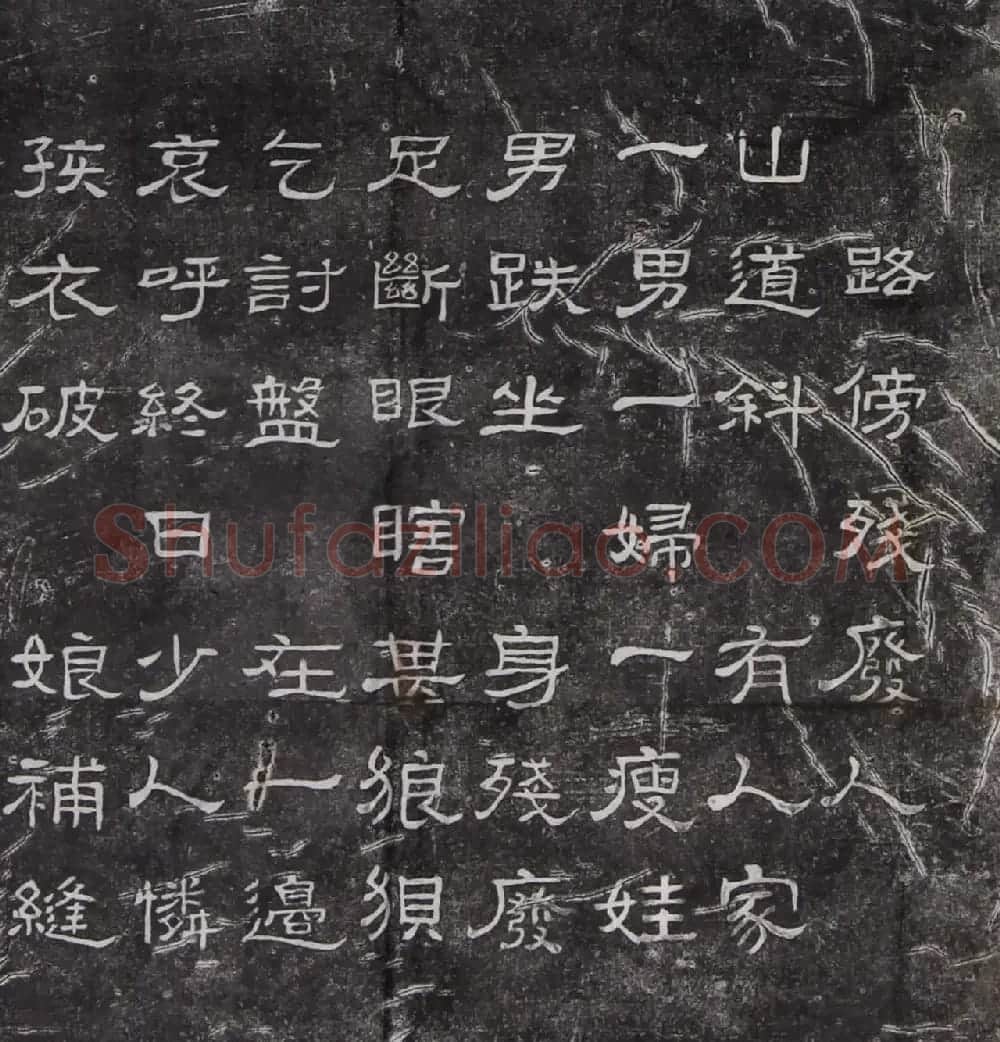 路傍殘廢人
山道斜 有人家
一男一婦一瘦娃
男跌坐 身殘廢
足斷眼瞎甚狼狽
乞討盤 在一邊
哀呼終日少人憐
孩衣破 娘補縫
Shufaziliao.COM